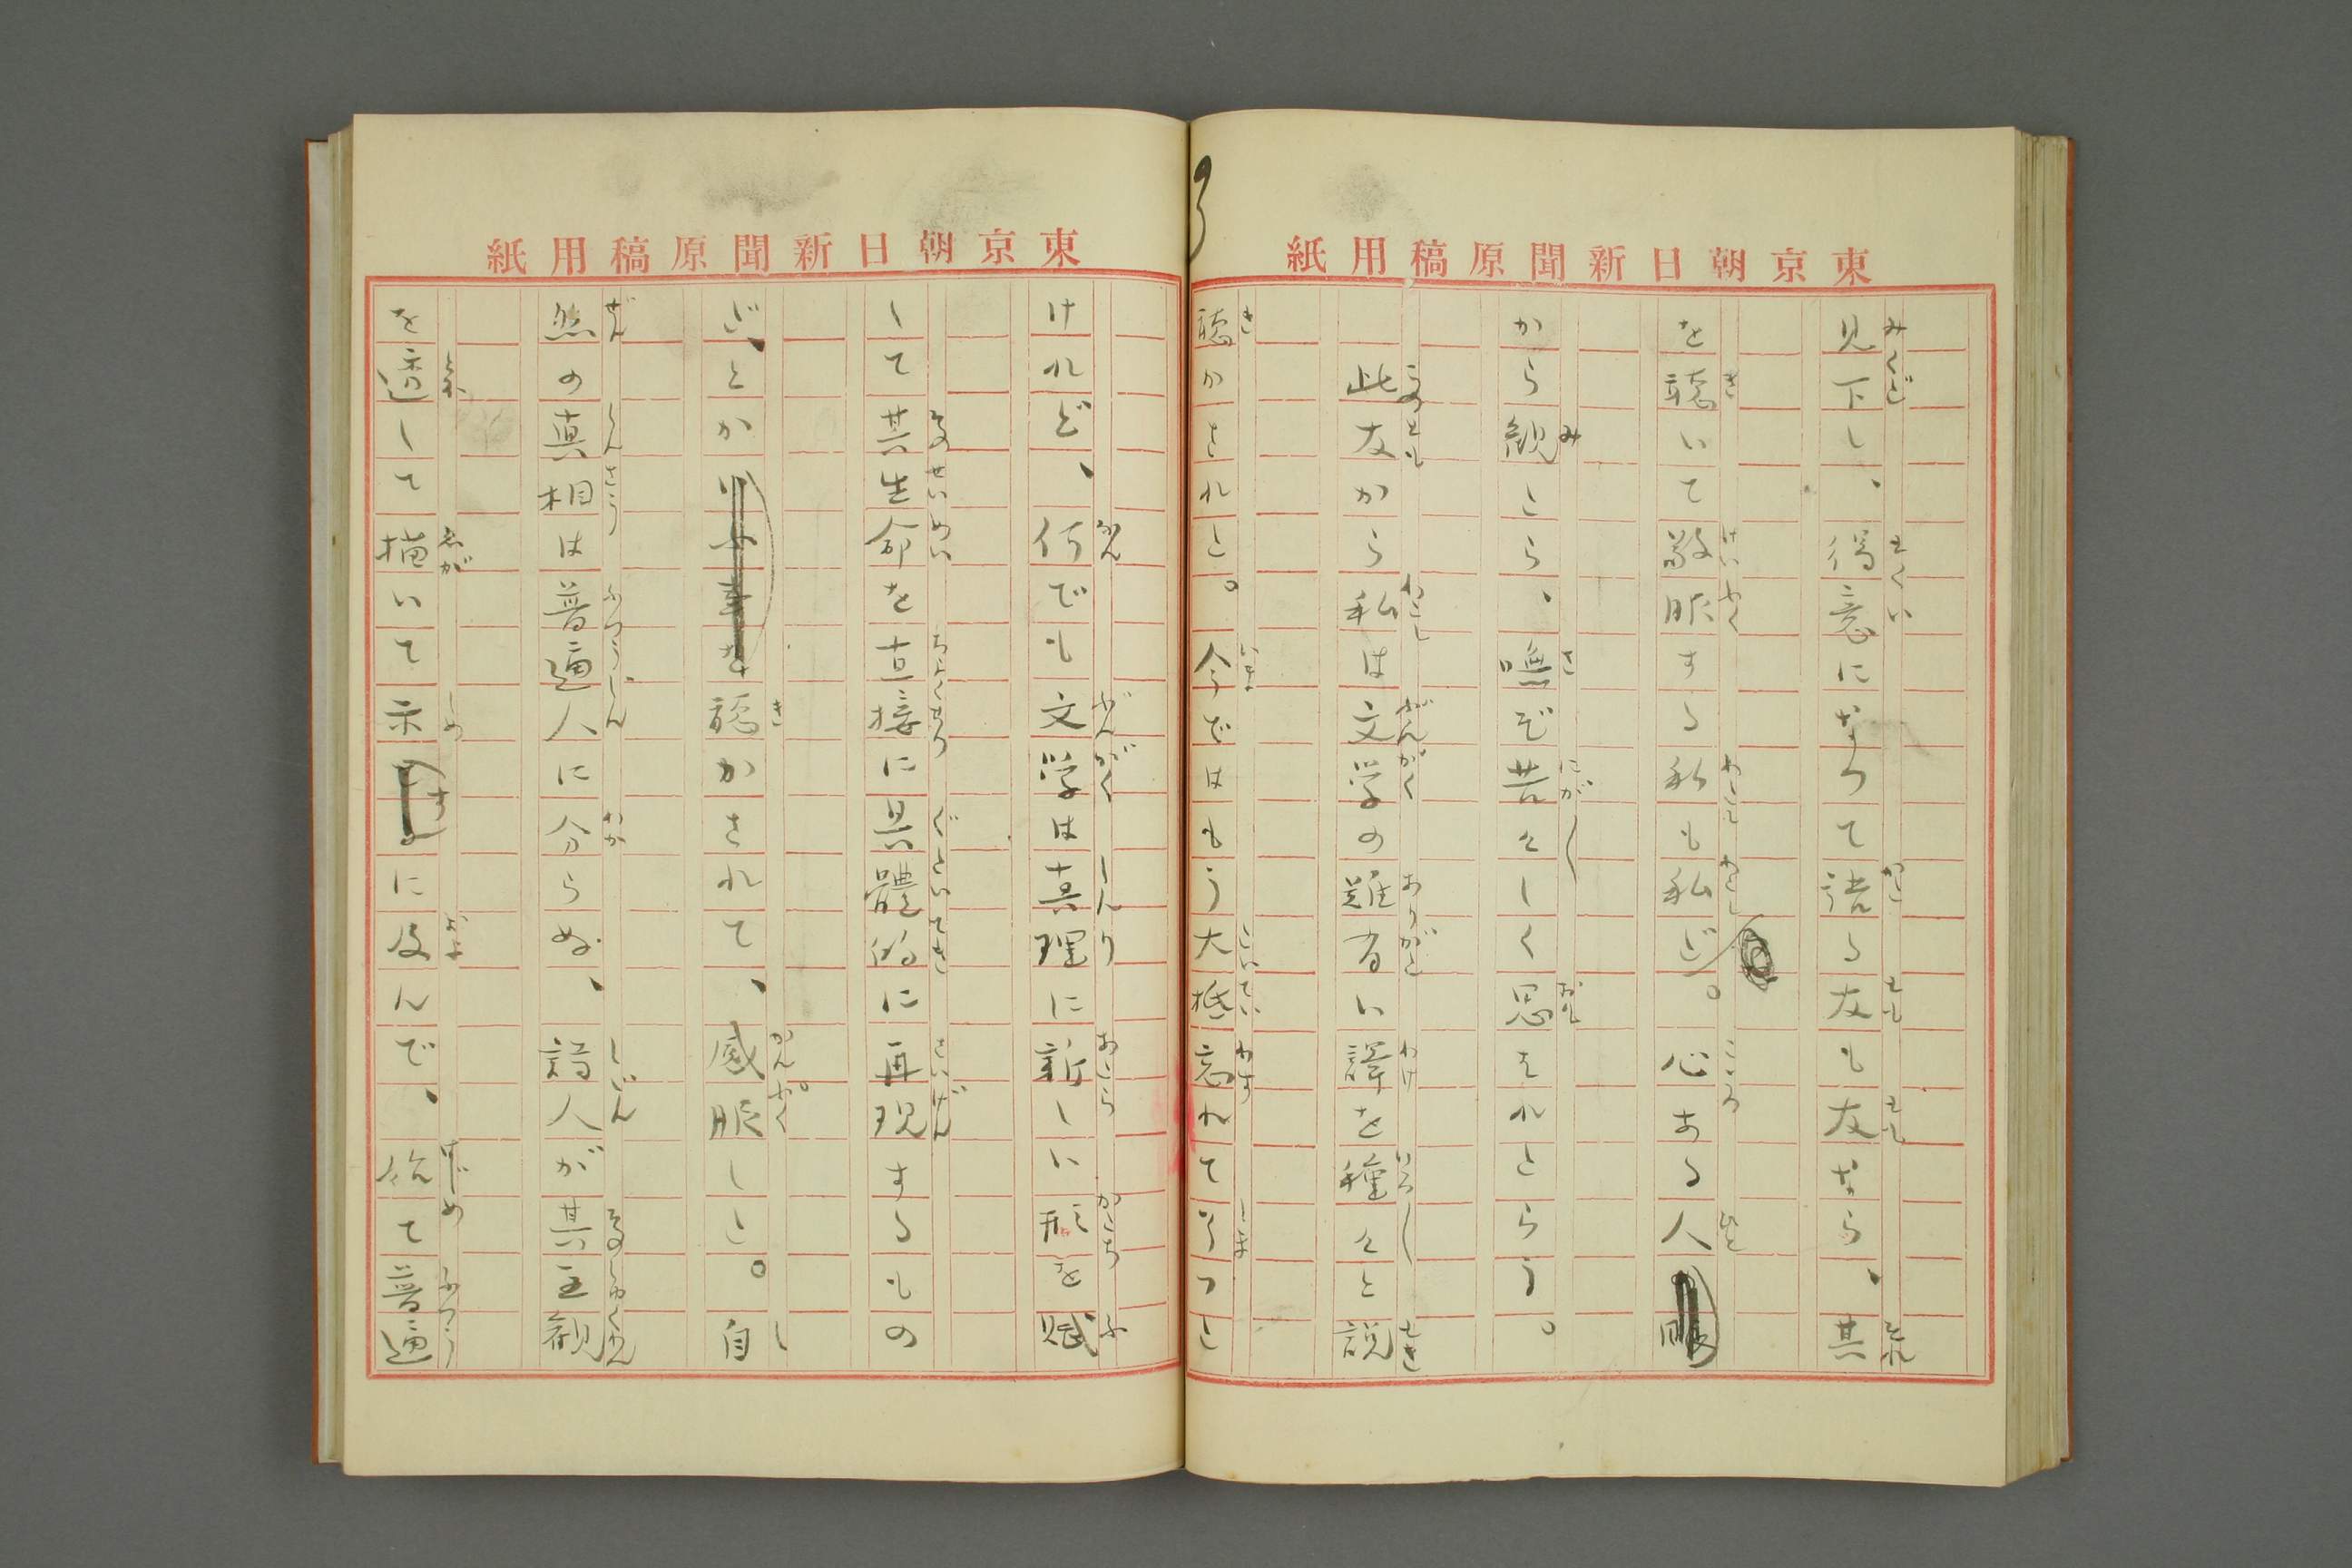 東京朝日新聞原稿用紙
見下し、得意になつて語る友も友なら、其
を聴いて敬服する私も私だ。心ある人
から観たら、嘸ぞ苦々しく思はれたらう。
此友から私は文学の難有い譯を種々と説
聴かされた。今ではもう大抵忘れて了つた
東京朝日新聞原稿用紙
けれど、何でも文学は真理に新しい形を賦
して其生命を直接に具體的に再現するもの
だ、とか聴かされて、感服した。自
然の真相は普通人に分らぬ、詩人が其主観
を透して描いて示すに及んで、始て普通